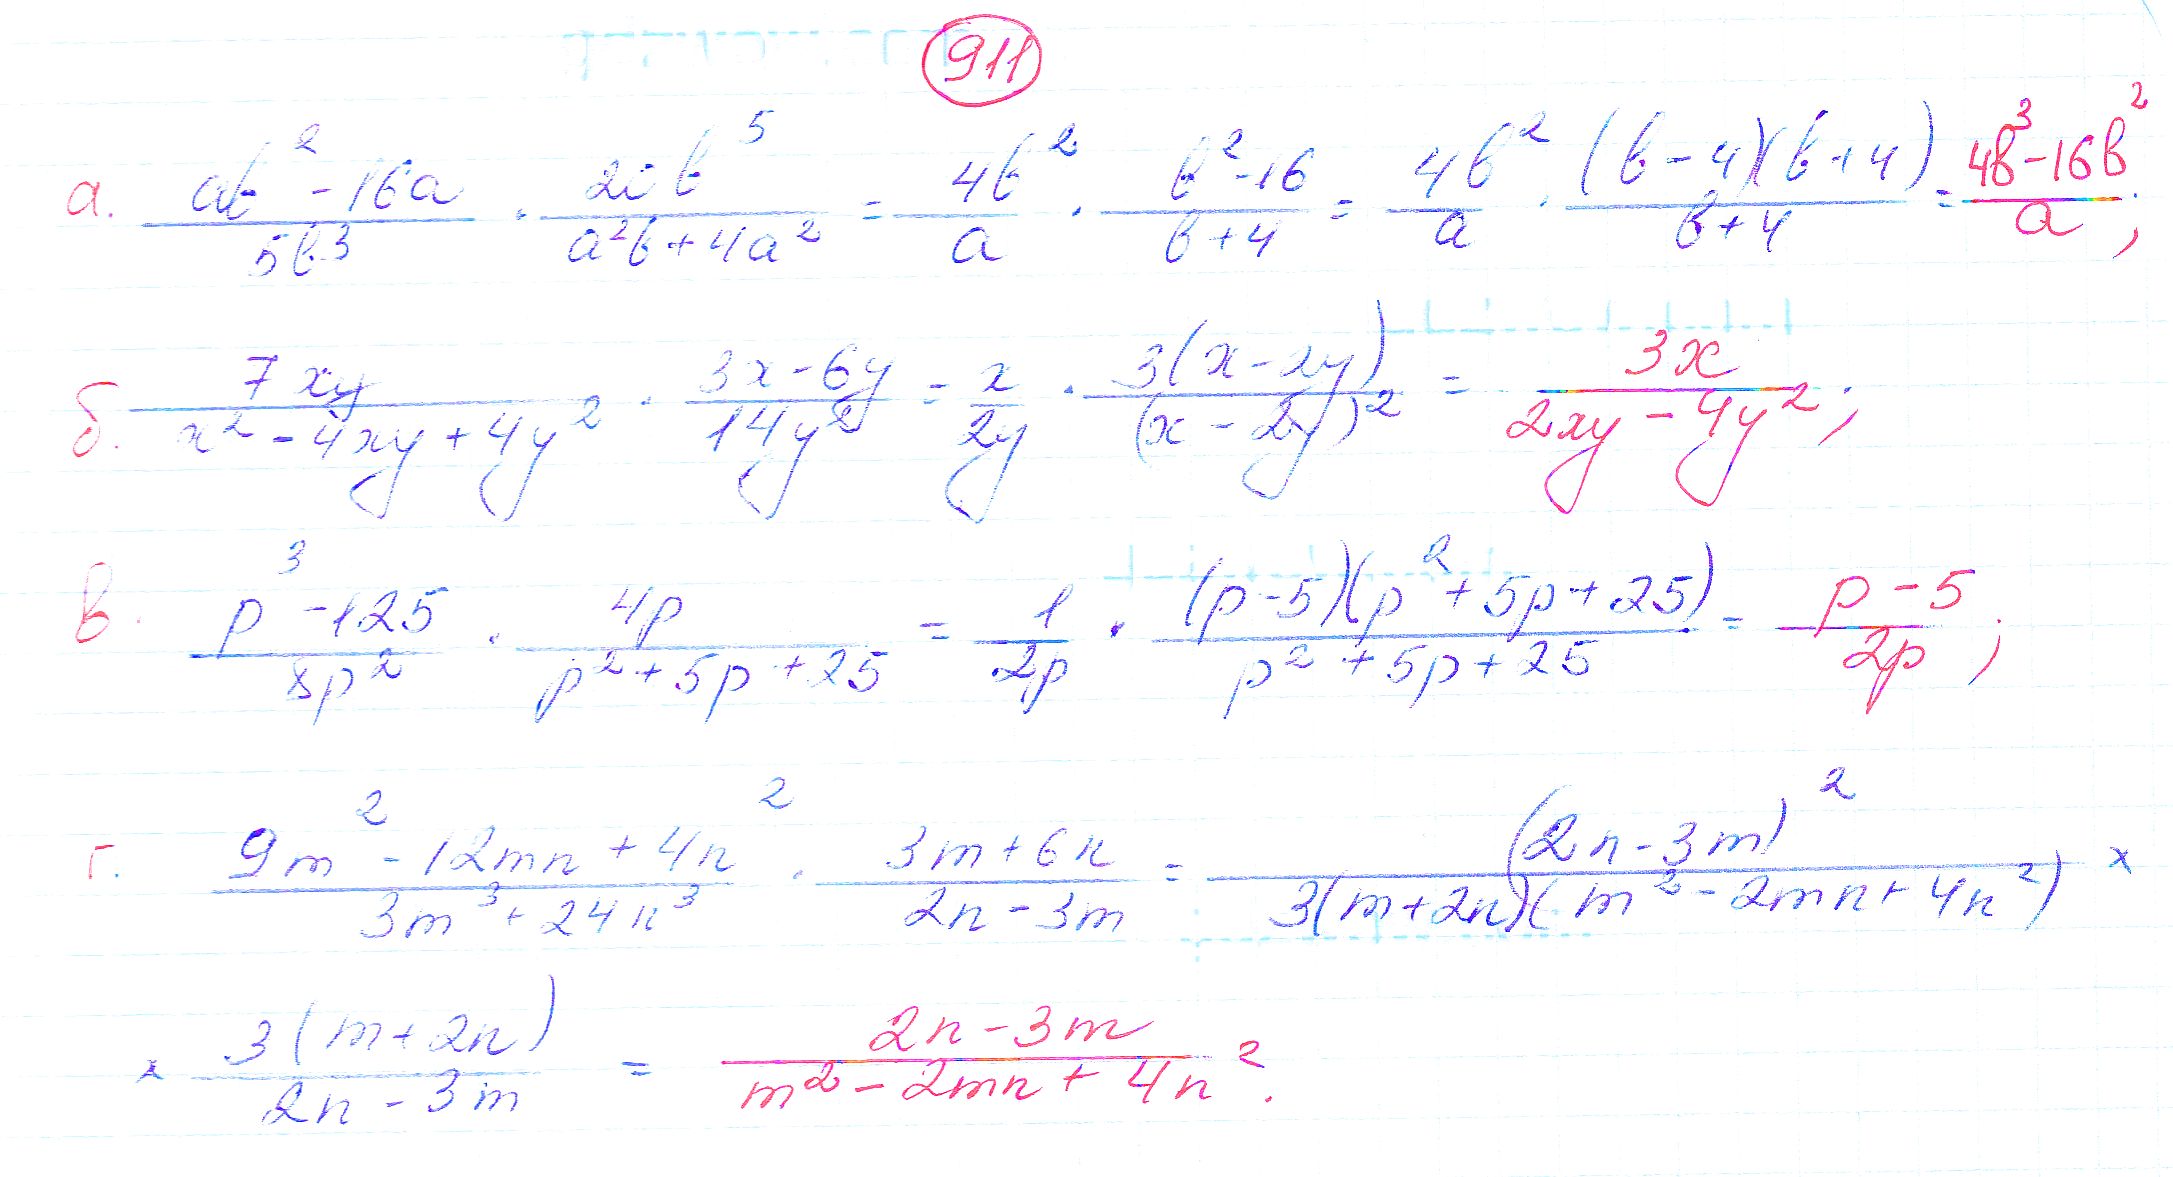 911
а. (ab² - 16a)/(5b³) · (20b⁵)/(a²b + 4a²) = (4b²)/a · (b² - 16)/(b + 4) = (4b²)/a · ((b - 4)(b + 4))/(b + 4) = (4b³ - 16b²)/a;
б. (7xy)/(x² - 4xy + 4y²) · (3x - 6y)/(14y²) = x/(2y) · (3(x - 2y))/((x - 2y)²) = (3x)/(2xy - 4y²);
в. (p³ - 125)/(8p²) · (4p)/(p² + 5p + 25) = 1/(2p) · ((p - 5)(p² + 5p + 25))/(p² + 5p + 25) = (p - 5)/(2p);
г. (9m² - 12mn + 4n²)/(3m³ + 24n³) · (3m + 6n)/(2n - 3m) = ((2n - 3m)²)/(3(m + 2n)(m² - 2mn + 4n²)) ×
× (3(m + 2n))/(2n - 3m) = (2n - 3m)/(m² - 2mn + 4n²).